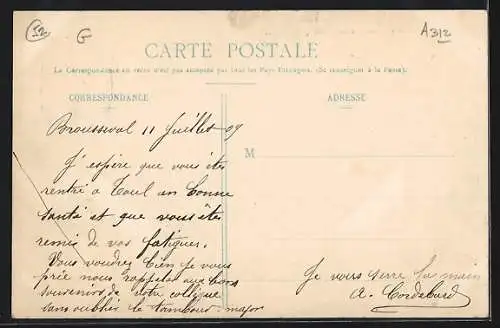 52
G
A312
CARTE POSTALE
La Correspondance au recto n'est pas acceptée par tous les Pays Étrangers. (Se renseigner à la Poste).
CORRESPONDANCE
ADRESSE
M
Brousseval 11 Juillet 09
J'espère que vous êtes
rentré à Toul en bonne
santé et que vous êtes
remis de vos fatigues.
Vous voudrez bien je vous
prie nous rappeler aux bons
souvenirs de votre collègue
sans oublier le tambour-major
Je vous serre la main
A.